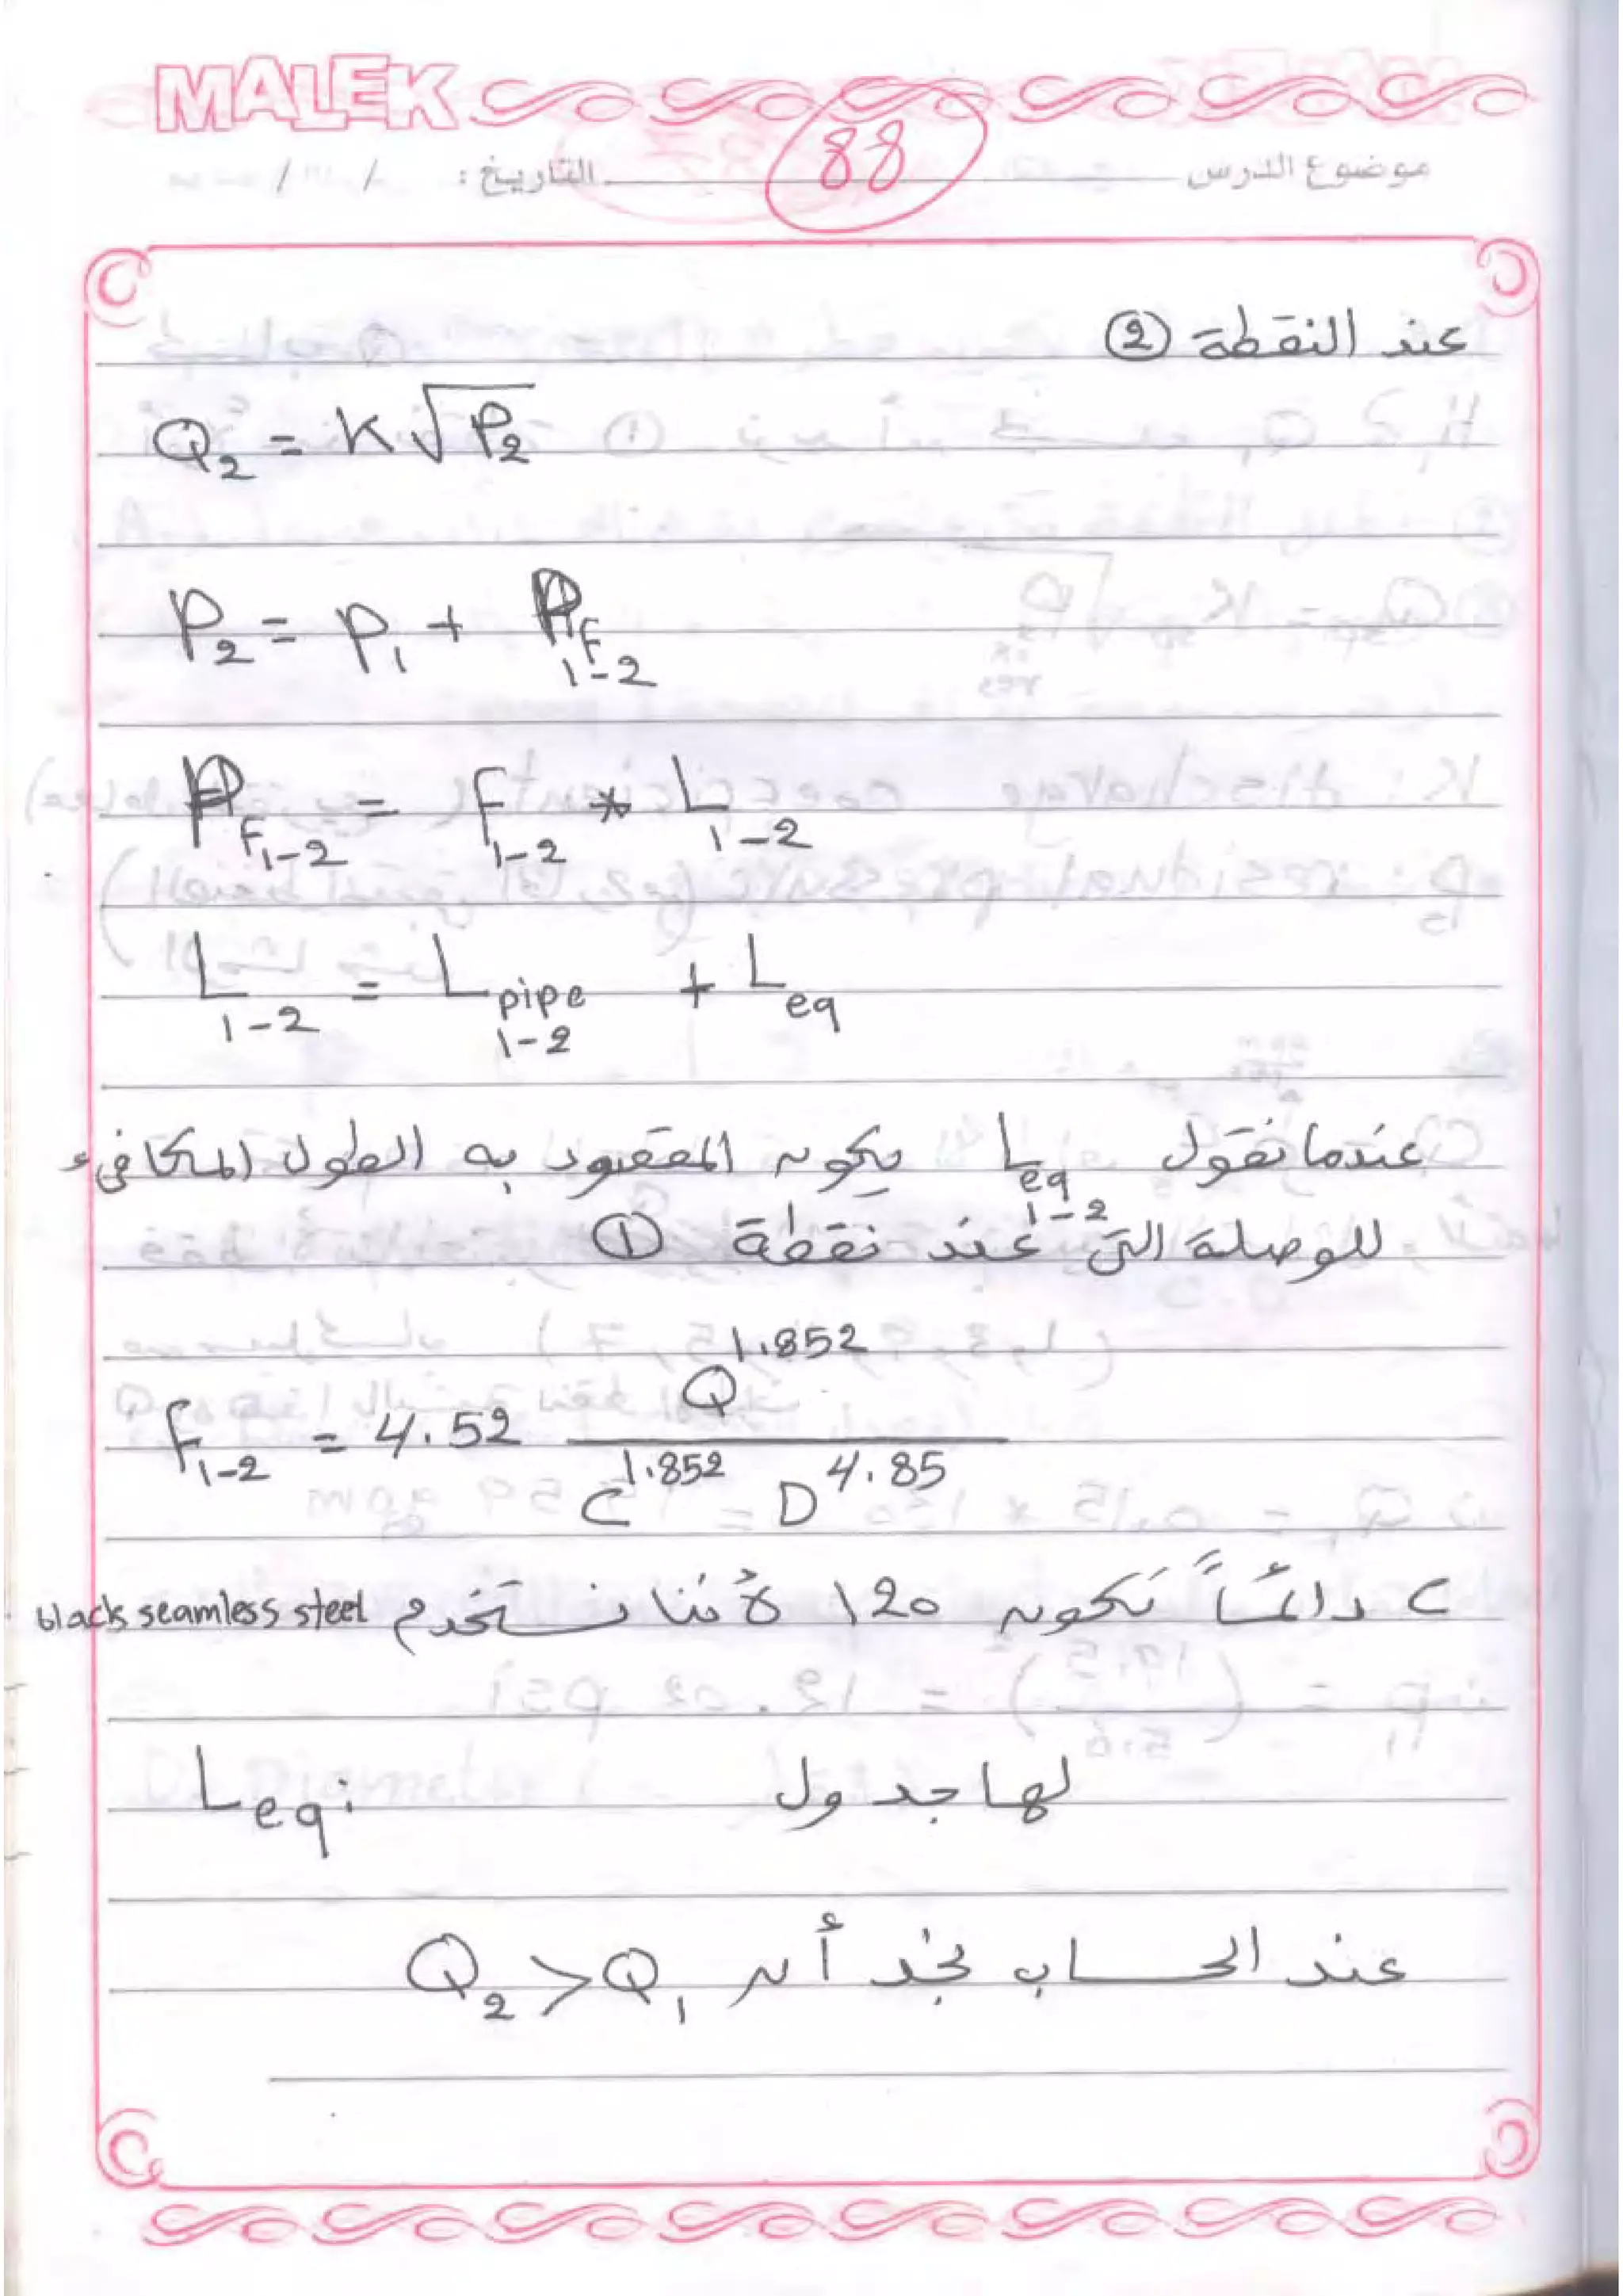 MALEK
88
موضوع الدرس التاريخ : / /
عند النقطة ②
Q₂ = K√P₂
P₂ = P₁ + P_f 1-2
P_f 1-2 = f 1-2 * L 1-2
L 1-2 = L pipe 1-2 + L eq
عندما نقول L eq 1-2 يكون المقصود به الطول المكافىء
للوصلة التي عند نقطة ①
f 1-2 = 4.52 Q^1.852 / C^1.852 D^4.85
C دائماً تكون 120 لأننا نستخدم black seamless steel
L eq: لها جدول
عند الحساب نجد أن Q₂ > Q₁